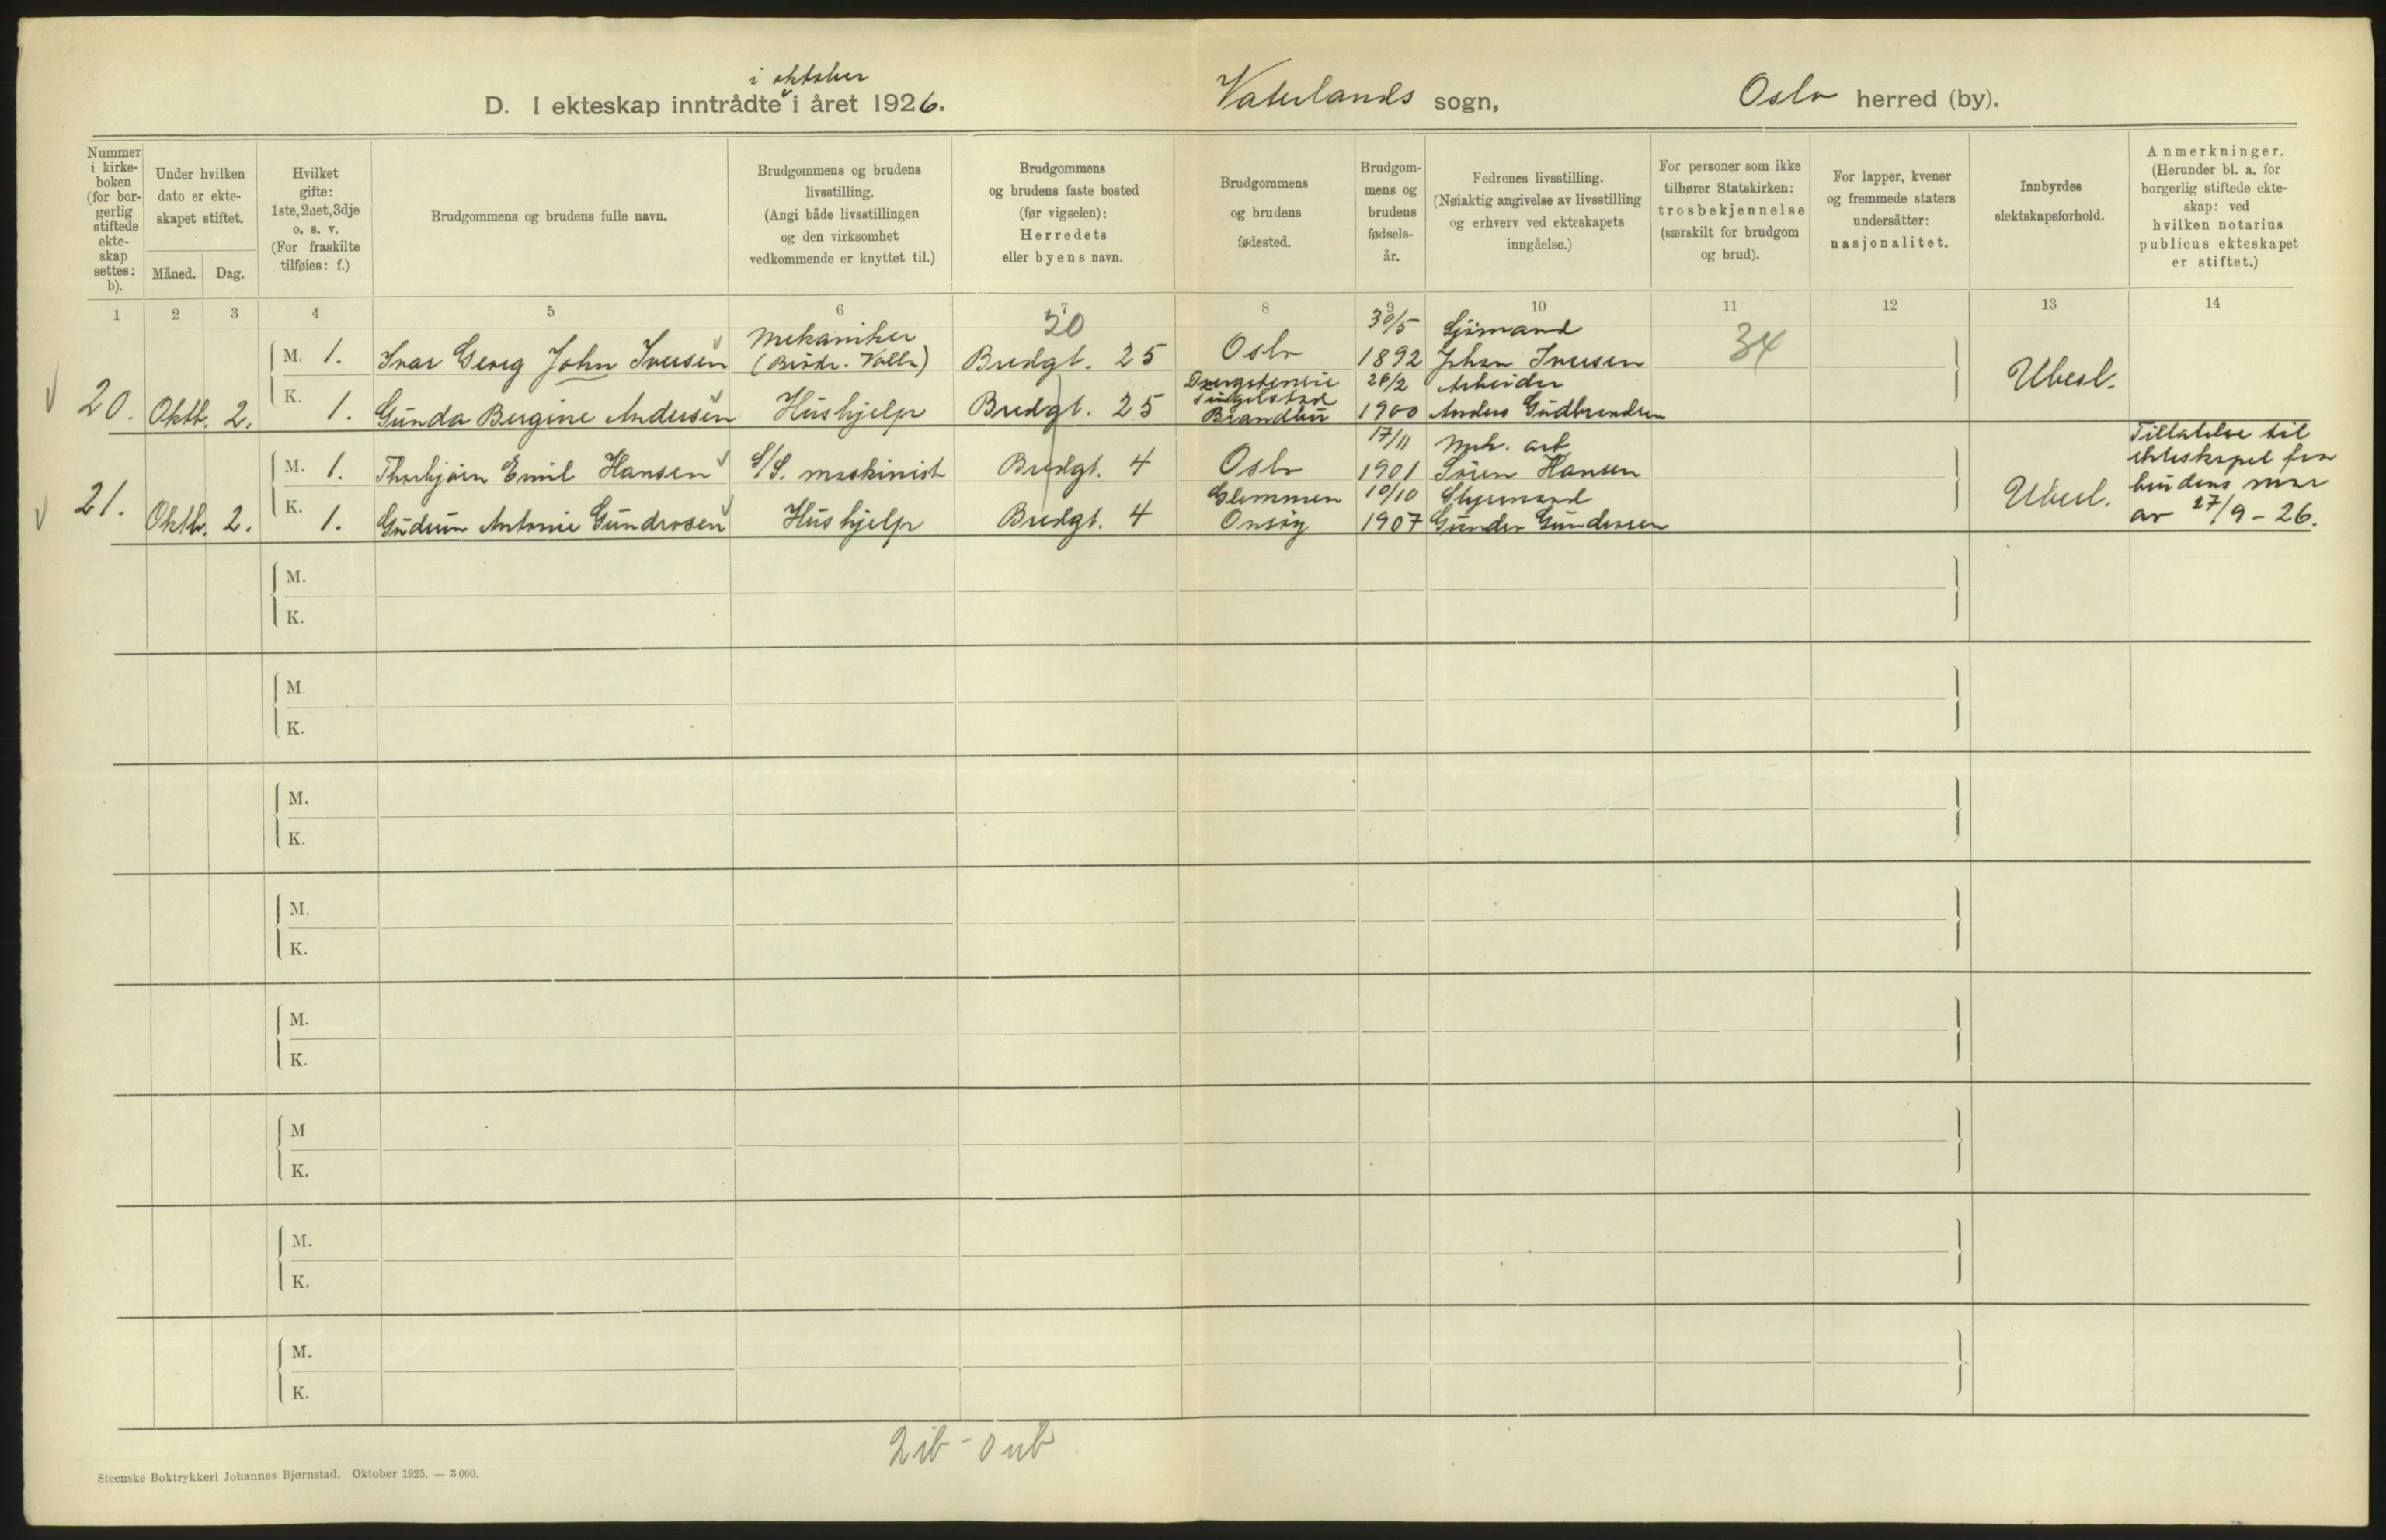 i oktober
D. I ekteskap inntrådte i året 1926.
Vaterlands sogn,
Oslo herred (by).
Nummer i kirke-boken (for bor-gerlig stiftede ekte-skap settes: b).
Under hvilken dato er ekte-skapet stiftet.
Måned. Dag.
Hvilket gifte: 1ste, 2net, 3dje o. s. v. (For fraskilte tilføies: f.)
Brudgommens og brudens fulle navn.
Brudgommens og brudens livsstilling. (Angi både livsstillingen og den virksomhet vedkommende er knyttet til.)
Brudgommens og brudens faste bosted (før vigselen): Herredets eller byens navn.
Brudgommens og brudens fødested.
Brudgom-mens og brudens fødsels-år.
Fedrenes livsstilling. (Nøiaktig angivelse av livsstilling og erhverv ved ekteskapets inngåelse.)
For personer som ikke tilhører Statskirken: trosbekjennelse (særskilt for brudgom og brud).
For lapper, kvener og fremmede staters undersåtter: nasjonalitet.
Innbyrdes slektskapsforhold.
Anmerkninger. (Herunder bl. a. for borgerlig stiftede ekte-skap: ved hvilken notarius publicus ekteskapet er stiftet.)
1 2 3 4 5 6 7 8 9 10 11 12 13 14
20 34
20. Oktb. 2.
M. 1. Ivar Georg John Iversen Mekaniker (Brødr. Volln) Bredgt. 25 Oslo 30/5 1892 Sjömand Johan Iversen
K. 1. Gunda Bergine Andersen Hushjelp Bredgt. 25 Tingelstad Brandbu 26/2 1900 Arbeider Anders Gudbrendsen
Ubesl.
21. Oktb. 2.
M. 1. Thorbjörn Emil Hansen S/S. maskinist Bredgt. 4 Oslo 17/11 1901 Mek. arb. Sören Hansen
K. 1. Gudrun Antonie Gundrosen Hushjelp Bredgt. 4 Glemmen Onsöy 10/10 1907 Styrmand Gunder Gundersen
Ubesl.
Tillatelse til
ekteskapet fra
brudens mor
av 27/9 - 26.
M.
K.
M.
K.
M.
K.
M.
K.
M.
K.
M
K.
M.
K.
M.
K.
2 ib - 0 ub
Steenske Boktrykkeri Johannes Bjørnstad. Oktober 1925. — 3 000.